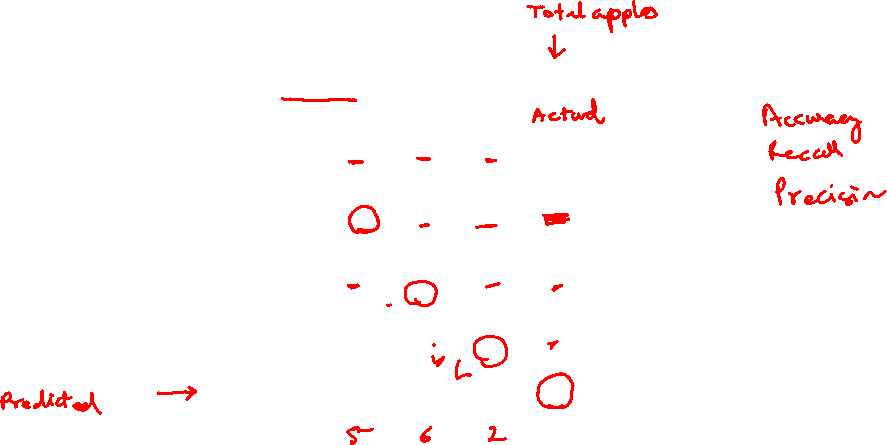 Total apples
Actual
Accuracy
Recall
Precision
Predicted
5 6 2